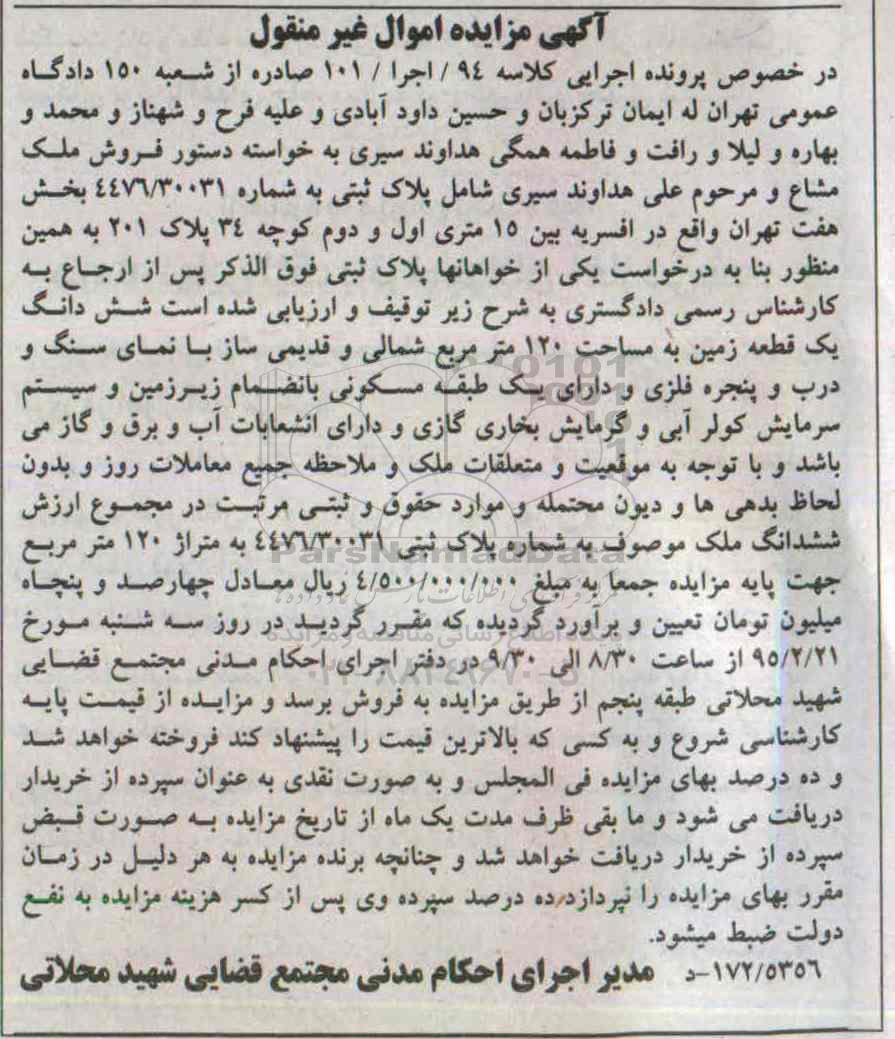 آگهی مزایده اموال غیر منقول
در خصوص پرونده اجرایی کلاسه ٩٤ / اجرا / ١٠١ صادره از شعبه ١٥٠ دادگاه
عمومی تهران له ایمان ترکزبان و حسین داود آبادی و علیه فرح و شهناز و محمد و
بهاره و لیلا و رافت و فاطمه همگی هداوند سیری به خواسته دستور فروش ملک
مشاع و مرحوم علی هداوند سیری شامل پلاک ثبتی به شماره ٤٤٧٦/٣٠٠٣١ بخش
هفت تهران واقع در افسریه بین ١٥ متری اول و دوم کوچه ٣٤ پلاک ٢٠١ به همین
منظور بنا به درخواست یکی از خواهانها پلاک ثبتی فوق الذکر پس از ارجاع به
کارشناس رسمی دادگستری به شرح زیر توقیف و ارزیابی شده است شش دانگ
یک قطعه زمین به مساحت ١٢٠ متر مربع شمالی و قدیمی ساز با نمای سنگ و
درب و پنجره فلزی و دارای یک طبقه مسکونی بانضمام زیرزمین و سیستم
سرمایش کولر آبی و گرمایش بخاری گازی و دارای انشعابات آب و برق و گاز می
باشد و با توجه به موقعیت و متعلقات ملک و ملاحظه جمیع معاملات روز و بدون
لحاظ بدهی ها و دیون محتمله و موارد حقوق و ثبتی مرتبت در مجموع ارزش
ششدانگ ملک موصوف به شماره پلاک ثبتی ٤٤٧٦/٣٠٠٣١ به متراژ ١٢٠ متر مربع
ParsNamadData
جهت پایه مزایده جمعا به مبلغ ٤/٥٠٠/٠٠٠/٠٠٠ ریال معادل چهارصد و پنجاه
میلیون تومان تعیین و برآورد گردیده که مقرر گردید در روز سه شنبه مورخ
٩٥/٢/٢١ از ساعت ٨/٣٠ الی ٩/٣٠ در دفتر اجرای احکام مدنی مجتمع قضایی
شهید محلاتی طبقه پنجم از طریق مزایده به فروش برسد و مزایده از قیمت پایه
کارشناسی شروع و به کسی که بالاترین قیمت را پیشنهاد کند فروخته خواهد شد
و ده درصد بهای مزایده فی المجلس و به صورت نقدی به عنوان سپرده از خریدار
دریافت می شود و ما بقی ظرف مدت یک ماه از تاریخ مزایده به صورت قبض
سپرده از خریدار دریافت خواهد شد و چنانچه برنده مزایده به هر دلیل در زمان
مقرر بهای مزایده را نپردازد،ده درصد سپرده وی پس از کسر هزینه مزایده به نفع
دولت ضبط میشود.
١٧٢/٥٣٥٦-د مدیر اجرای احکام مدنی مجتمع قضایی شهید محلاتی